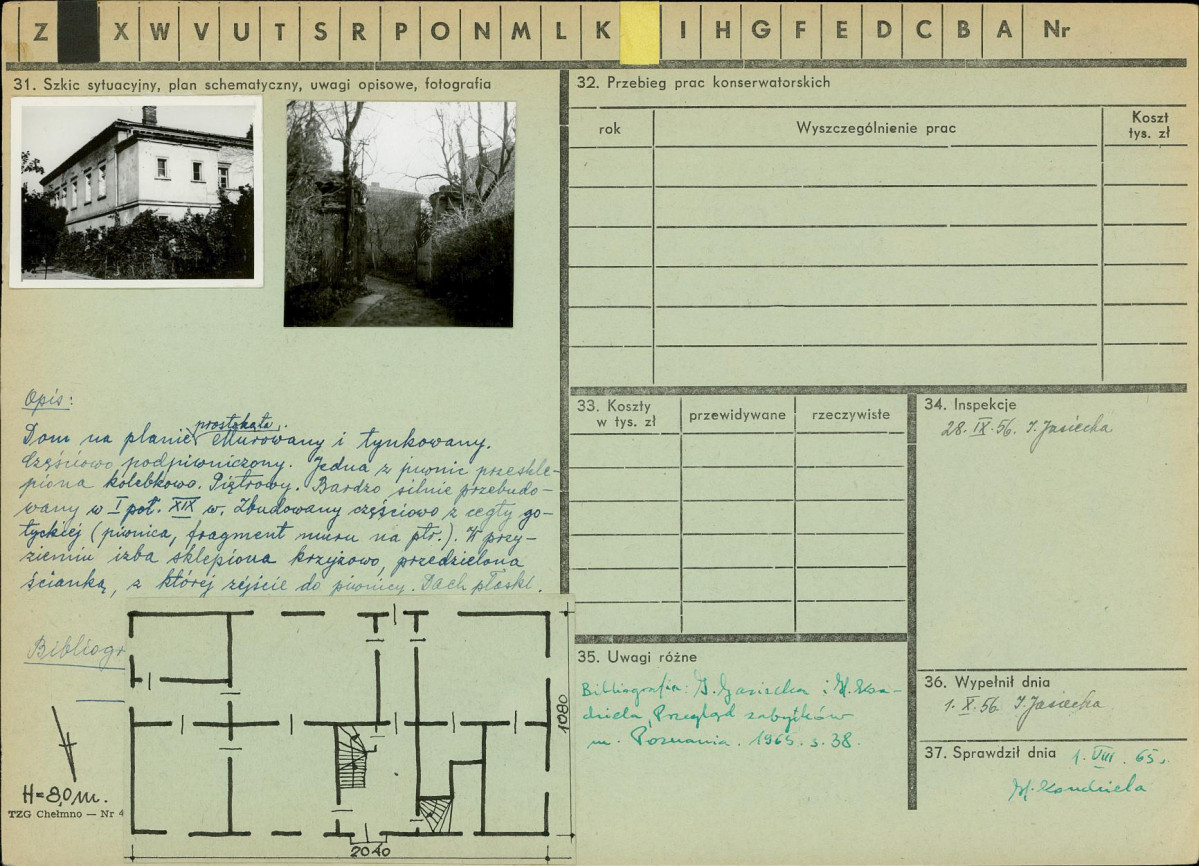 Z X W V U T S R P O N M L K I H G F E D C B A Nr
31. Szkic sytuacyjny, plan schematyczny, uwagi opisowe, fotografia
Opis:
prostokąta.
Dom na planie Murowany i tynkowany.
Częściowo podpiwniczony. Jedna z piwnic przeskle-
piona kolebkowo. Piętrowy. Bardzo silnie przebudo-
wany w I poł. XIX w. Zbudowany częściowo z cegły go-
tyckiej (piwnica, fragment muru na ptr.). W przy-
ziemiu izba sklepiona krzyżowo, przedzielona
ścianką, z której zejście do piwnicy. Dach płaski.
Bibliogr
H=8,0m.
TZG Chełmno — Nr 4
1080
2040
32. Przebieg prac konserwatorskich
rok
Wyszczególnienie prac
Koszt
tys. zł
33. Koszty
w tys. zł
przewidywane
rzeczywiste
34. Inspekcje
28. IX. 56. I. Jasiecka
35. Uwagi różne
Bibliografia: I. Jasiecka i H. Kon-
dziela, Przegląd zabytków
m. Poznania. 1965. s. 38.
36. Wypełnił dnia
1. X. 56. I. Jasiecka
37. Sprawdził dnia 1. VIII. 65.
H. Kondziela